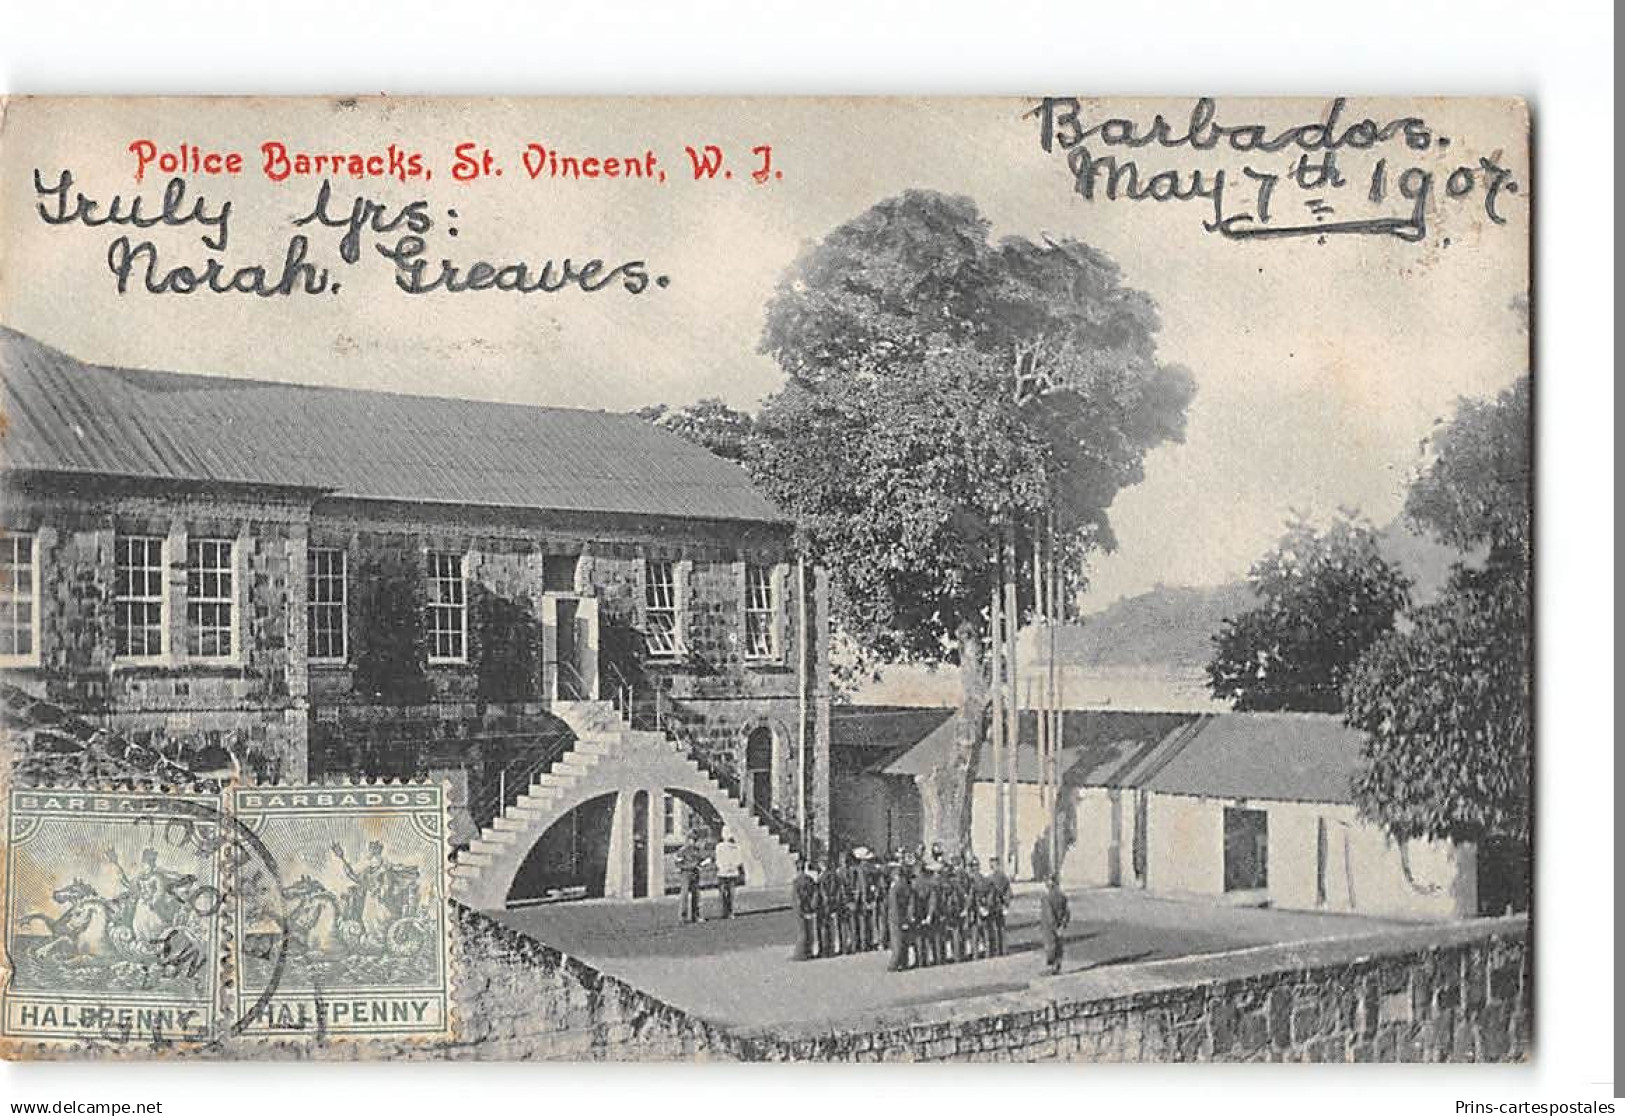 Barbados.
May 7th 1907.
Police Barracks, St. Vincent, W. I.
Truly Yrs:
Norah. Greaves.
BARBADOS
HALFPENNY
BARBADOS
HALFPENNY
www.delcampe.net
Prins-cartespostales